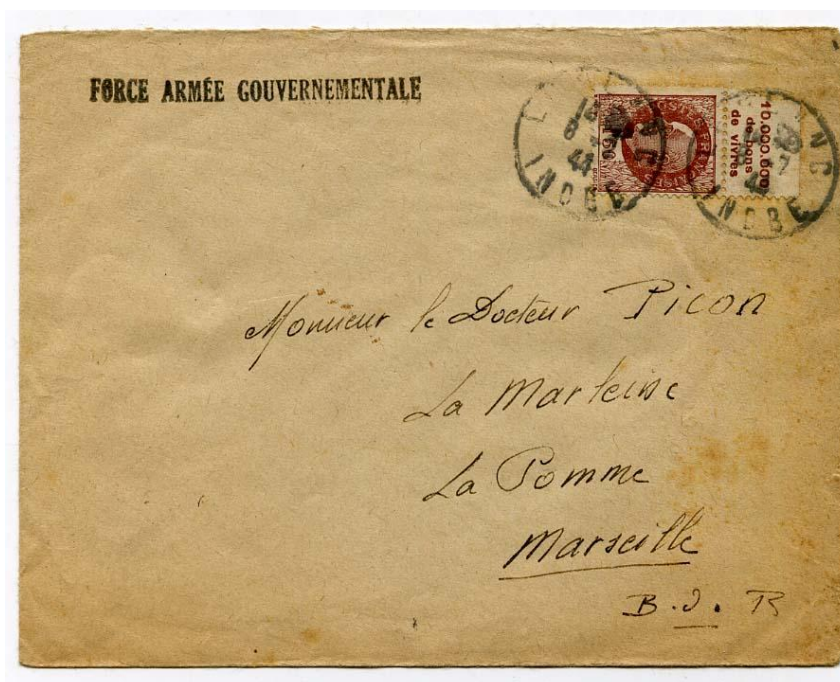 FORCE ARMÉE GOUVERNEMENTALE
10.000.000
de bons
de vivres
INDRE
INDRE
Monsieur le Docteur Picon
La Marteine
La Pomme
Marseille
B. d. R